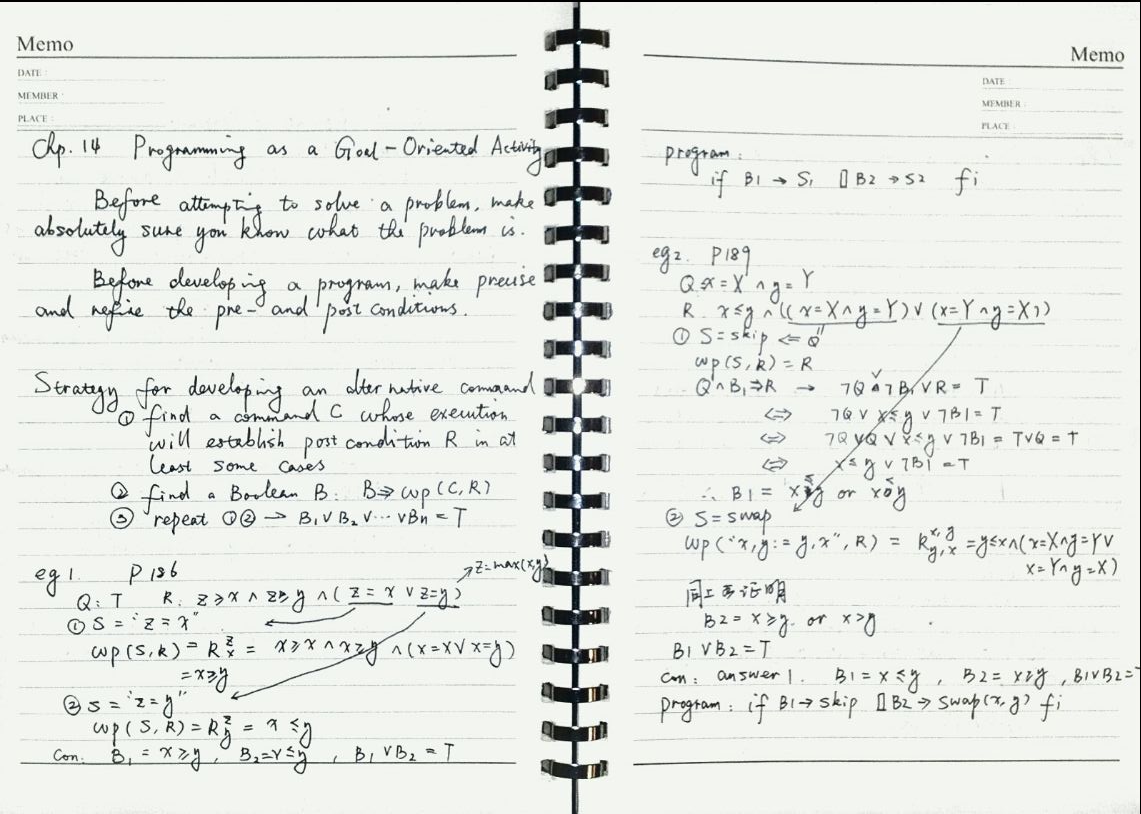 Memo
DATE :
MEMBER :
PLACE :
Chp. 14 Programming as a Goal-Oriented Activity
Before attempting to solve a problem, make
absolutely sure you know what the problem is.
Before developing a program, make precise
and refine the pre- and post conditions.
Strategy for developing an alternative command
① find a command C whose execution
will establish post condition R in at
least some cases
② find a Boolean B: B⇒wp(C,R)
③ repeat ①② → B₁∨B₂∨⋯∨Bn=T
eg 1. P186
z=max(x,y)
Q: T R: z≥x ∧ z≥y ∧ (z=x ∨ z=y)
① S="z=x"
wp(S,R)=R z x = x≥x ∧ x≥y ∧ (x=x∨x=y)
=x≥y
② S="z=y"
wp(S,R)=R z y = x≤y
Con: B₁=x≥y, B₂=x≤y, B₁∨B₂=T
Memo
DATE :
MEMBER :
PLACE :
program:
if B1→S₁ ▯B2→S2 fi
eg2. P189
Q: x=X ∧ y=Y
R. x≤y ∧ ((x=X∧y=Y)∨(x=Y∧y=X))
① S=skip ⇐ Q
wp(S,R)=R
Q∧B₁⇒R → ¬Q∨¬B₁∨R=T
⇔ ¬Q∨x≤y∨¬B1=T
⇔ ¬Q∨Q∨x≤y∨¬B1=T∨Q=T
⇔ x≤y∨¬B1=T
∴ B1 = x≤y or x<y
② S=swap
wp("x,y:=y,x",R) = R x,y y,x = y≤x∧(x=X∧y=Y∨
x=Y∧y=X)
同上可证明
B2=x≥y or x>y
B1∨B2=T
Con: answer 1. B1=x≤y, B2=x≥y, B1∨B2=T
program: if B1→skip ▯B2→swap(x,y) fi